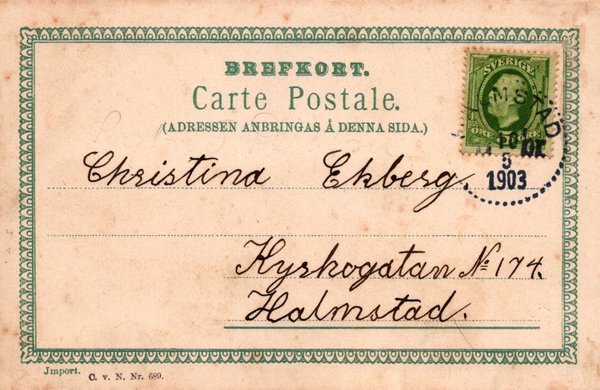 BREFKORT.
Carte Postale.
(ADRESSEN ANBRINGAS Å DENNA SIDA.)
SVERIGE
ÖRE
1903
Christina Ekberg
Kyrkogatan No 174.
Halmstad.
Jmport.
C. v. N. Nr. 689.